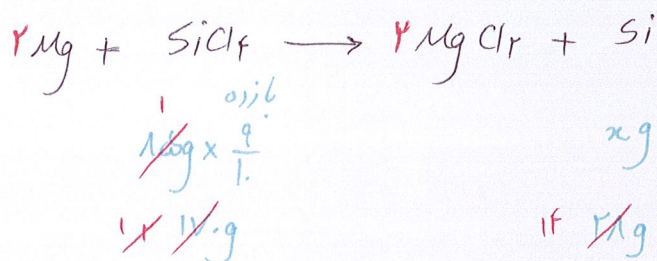 ۲Mg + SiCl۴ → ۲MgCl۲ + Si
بازده
۱
۸۵g × ۹/۱۰
xg
۱ × ۱۷۰g
۱۴ ۲۸g